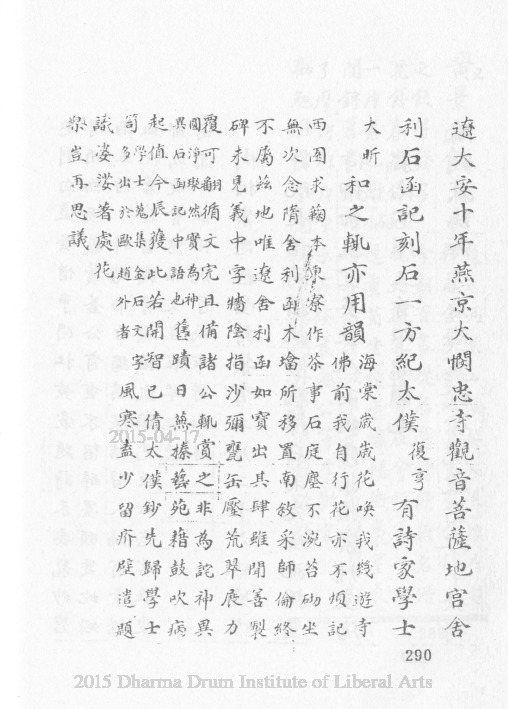 遼大安十年燕京大憫忠寺觀音菩薩地宮舍
利石函記刻石一方紀太僕復亨有詩家學士
大昕和之輒亦用韻
海棠歲歲花喚我幾遊寺
佛前我自行花亦不煩記
西園求鞠本東寮作茶事石庭塵不涴苔砌坐
無次念隋舍利函木墖所移置南敘采師倫終
不屬茲地唯遼舍利函如寶出其肆雖聞善製
碑未見義中字牆陰指沙彌甓缶壓荒翠展力
覆可翻循文完且備諸公輒賞之非為詫神異
圓淨璨然實為神
異石函記中語也
舊蹟日蕪榛藝苑藉鼓吹病
起值今辰獲此若開智已倩太僕鈔先歸學士
笥
學士蒐集金石文字
多出於歐趙外者
風寒蓋少留疥壁遣題
議婆娑著處花
眾豈再思議
2015-04-17
290
2015 Dharma Drum Institute of Liberal Arts